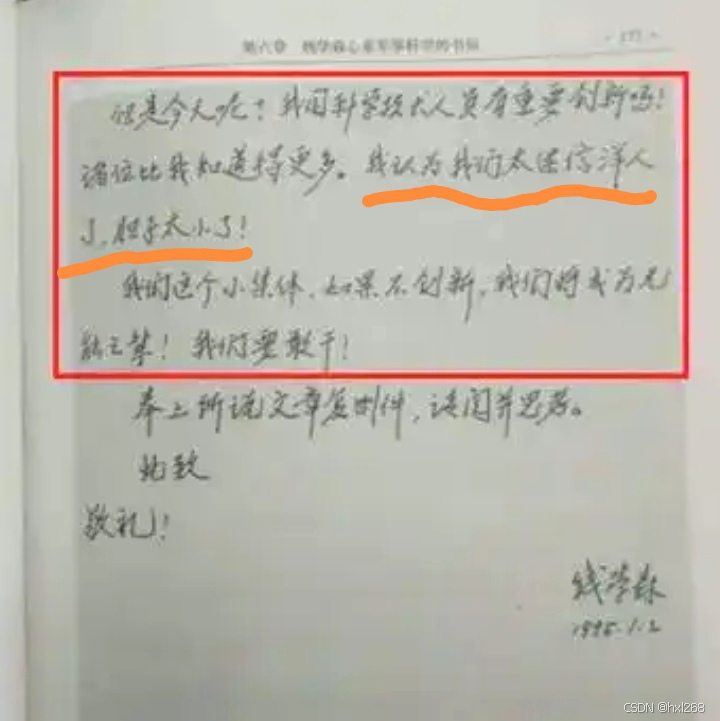 第六章 钱学森心系军事科学的书信
但是今天呢?我国科学技术人员有重要创新吗?
诸位比我知道得更多。我认为我们太迷信洋人
了,胆子太小了!
我们这个小集体,如果不创新,我们将成为无
能之辈!我们要敢干!
奉上所说文章复制件,请阅并思考。
此致
敬礼!
钱学森
1995.1.2
CSDN @hxl268